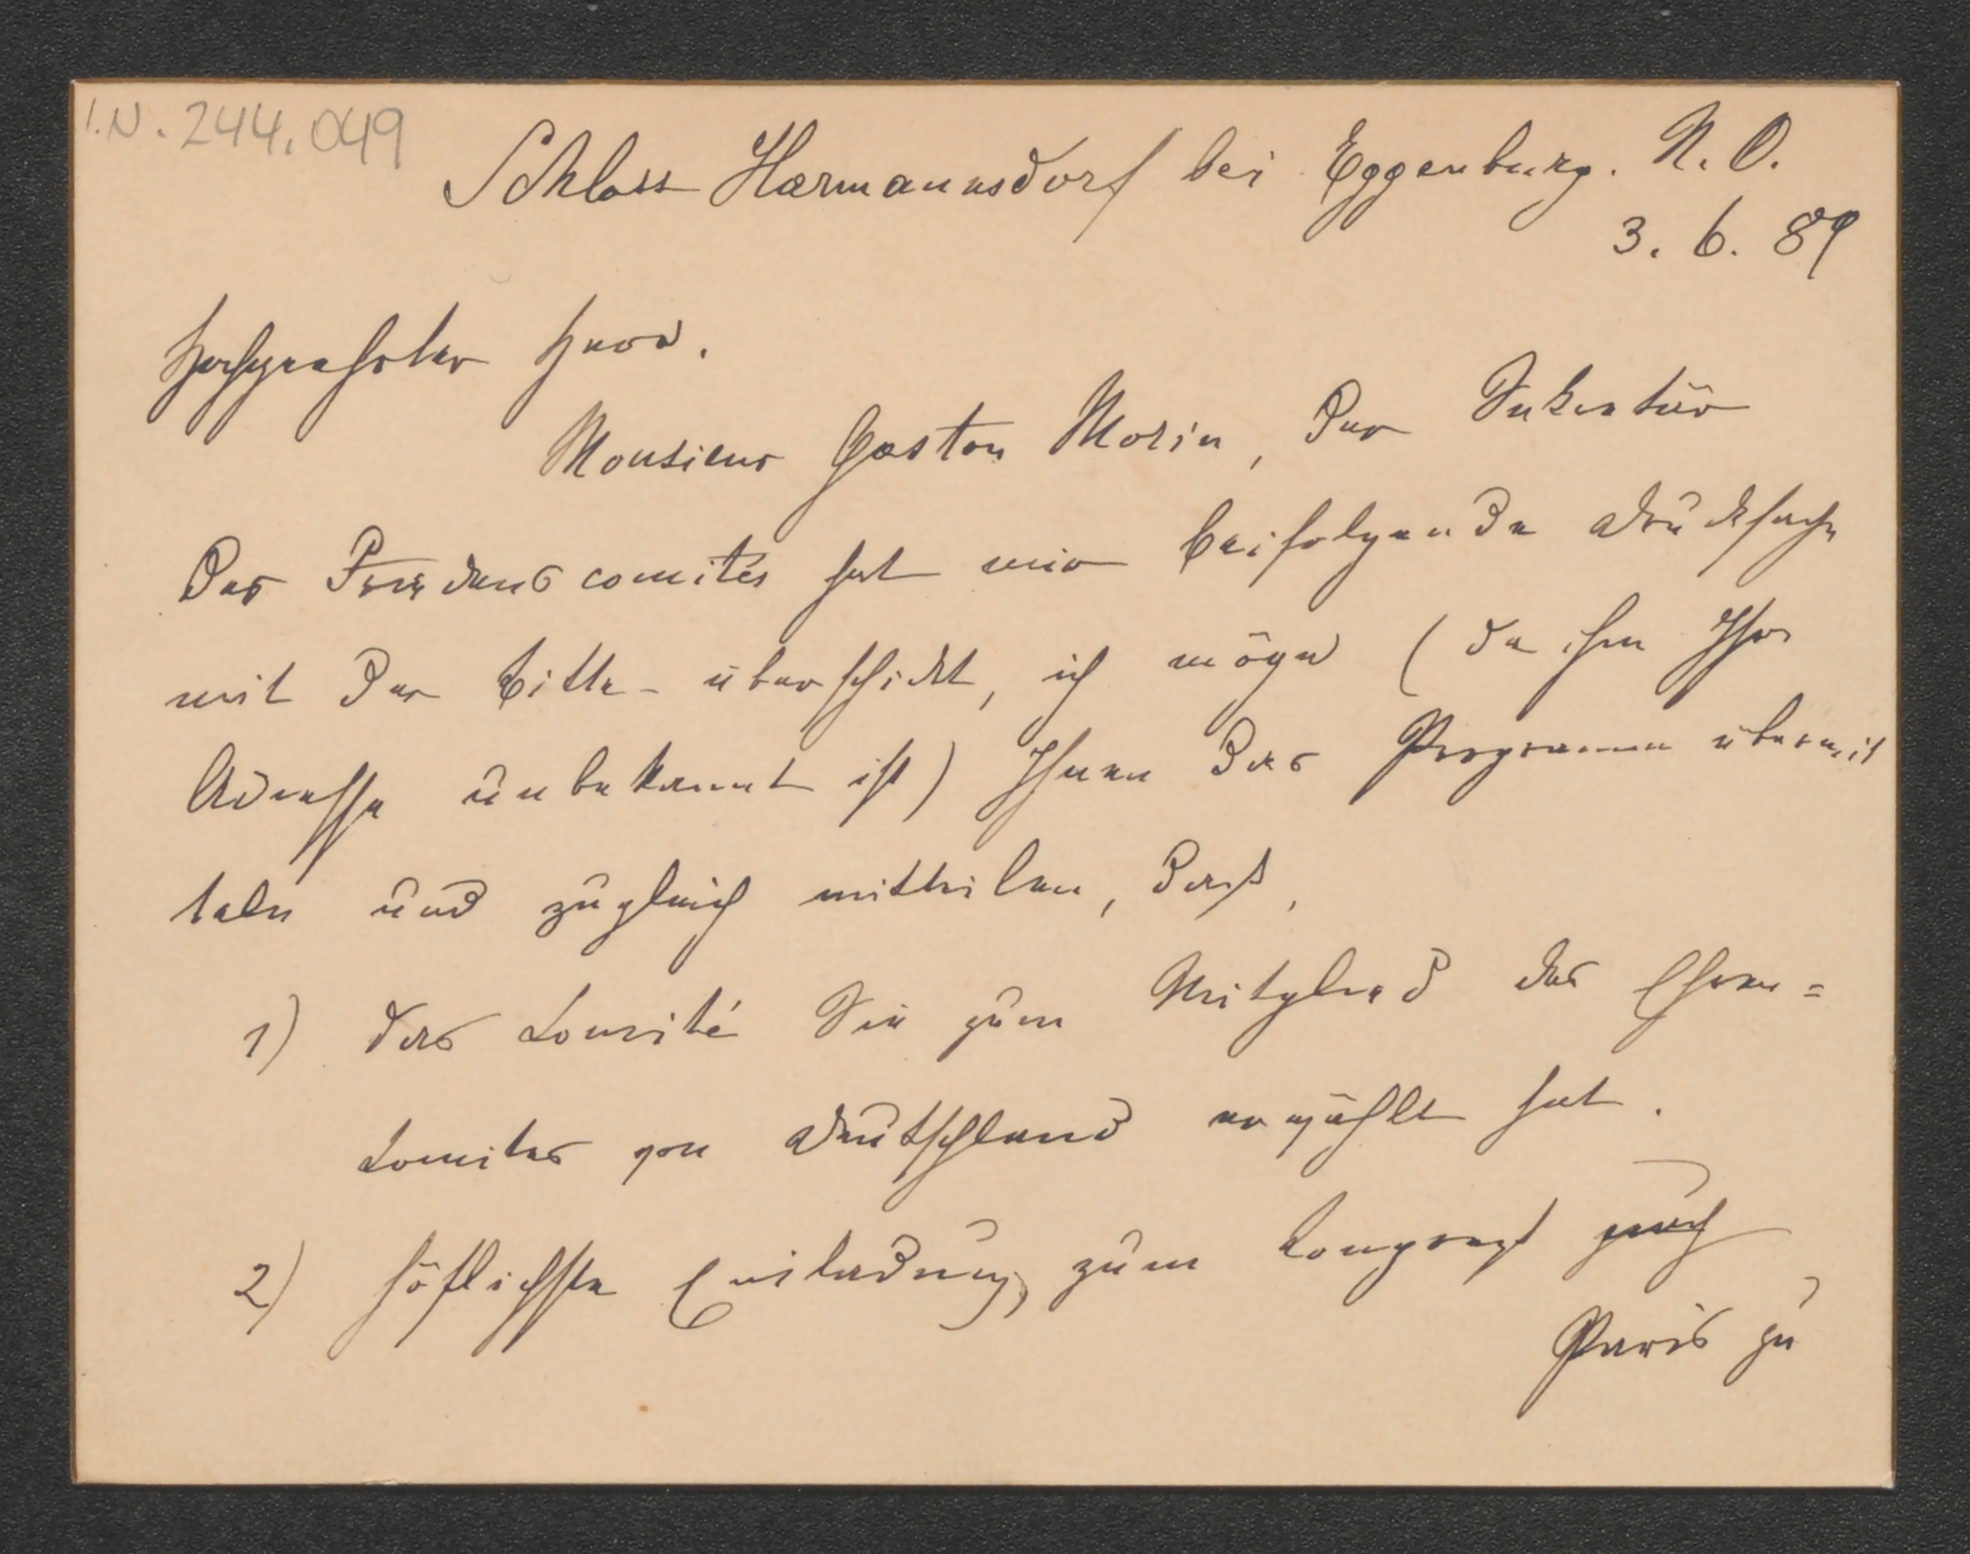 I.N. 244.049
Schloss Harmannsdorf bei Eggenburg. N.O.
3. 6. 89
Hochgeehrter Herr.
Monsieur Gaston Morin, der Sekretär
des Friedenscomités hat mir beifolgende Drucksache
mit der Bitte überschickt, ich möge (da ihm Ihre
Adresse unbekannt ist) Ihnen das Programm übermit
teln und zugleich mittheilen, daß,
1) das Comité Sie zum Mitglied des Ehren=
Comites von Deutschland erwählt hat.
2) höflichste Einladung zum Congreß nach
Paris zu